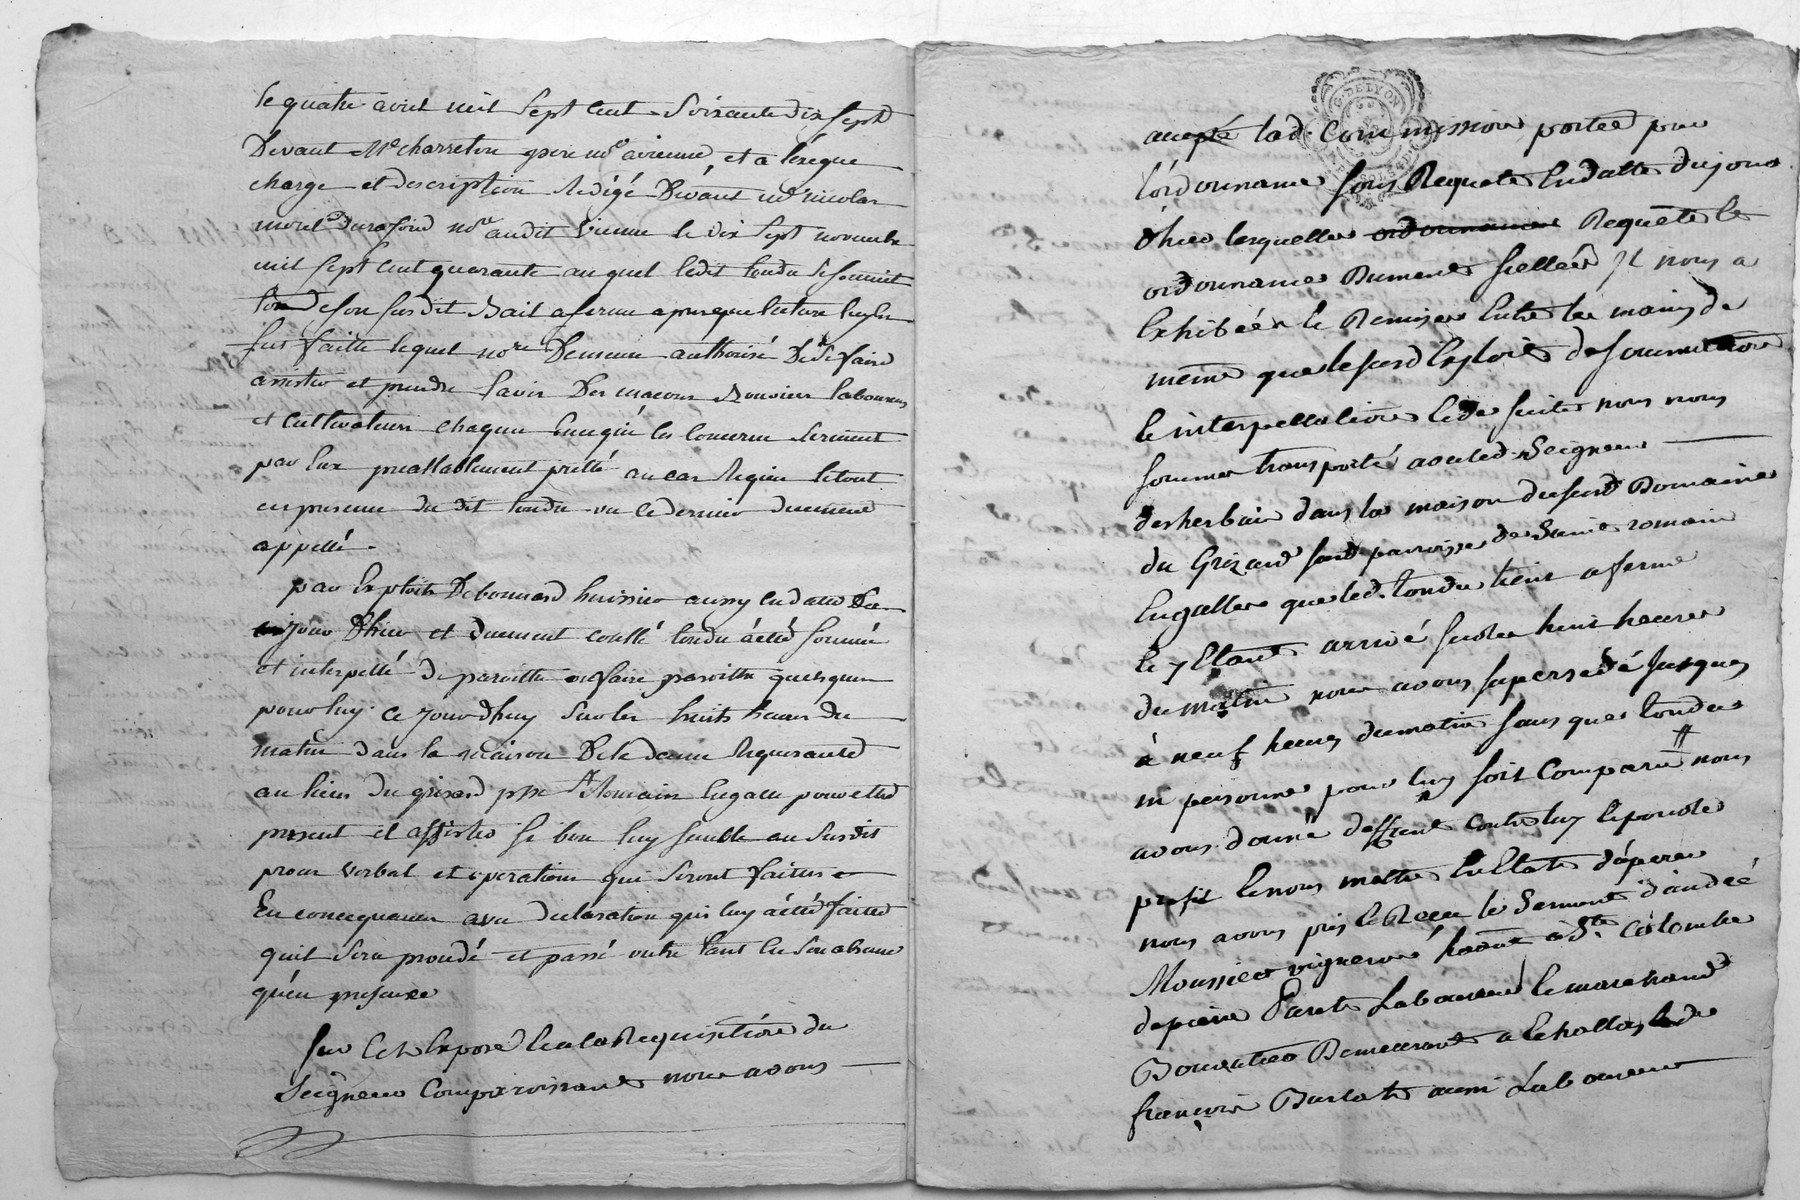 le quatre avril mil sept cent soixante dix sept
Devant Me charreton pere nre a vienne, et a lexegue
charge et description redigé Devant Me nicolas
morel nre audit Vienne le dix sept novembre
mil sept cent quarante auquel ledit tondu se soumit
lors de son susdit Bail a ferme apres que lecture luy en
fut faitte lequel nore Demeure authorisé De se faire
assister et prendre lavis Des macons Bouviers laboureurs
et cultivateurs chaqun en ce qui les concerne serment
par eux preallablement pretté au cas requis le tout
en presence du dit tondu ou ce dernier duement
appellé.
par Exploit De bonnard huissier aussy en datte De
jour Dhier et duement conllé tondu a été sommé
et interpellé de paroitre ou faire paroitre quelquun
pour luy ce jourdhuy sur les huit heures du
matin dans la maison De la dame Requerante
au lieu du grisard psse St Romain Engalle pour etre
present et assister si bon luy semble au susdit
proces verbal et operations qui seront faittes
En consequance avec declaration qui luy a été faitte
quil sera proudé et passé outre tant en son absence
qu'en presence
sur Cet Exposé Et a la Requisition du
Seigneur Comparoissant nous avons
G. DE LYON
accepté lad. Commission portée par
l'ordonnance sous Requete En datte du jour
d'hier lesquelles ordonnance Requete Et
ordonnance Dument scellées Il nous a
Exhibées Et Remises Entre les mains de
même que le susd Exploit de sommation
Et interpellation Et de suite nous nous
sommes transporté avec led. Seigneur
desherbain dans la maison du susd Domaine
du Grizard susd parroisse de Saint romain
Engalle que led. tondu tient a ferme
Et y Etant arrivé sur les huit heures
du matin nous avons supersedé jusques
à neuf heures du matin sans que tondu
ni personne pour luy soit Comparu nous
avons donné deffaut contre luy Et pour le
profit Et nous mettre En Etat d'operer
nous avons pris Et Reçu le Serment d'andré
Moussier vigneron habt a Ste Colombe
de pierre Laboureur Et marchand
Demeurant a Echallas Et de
françois Burlat aussi Laboureur